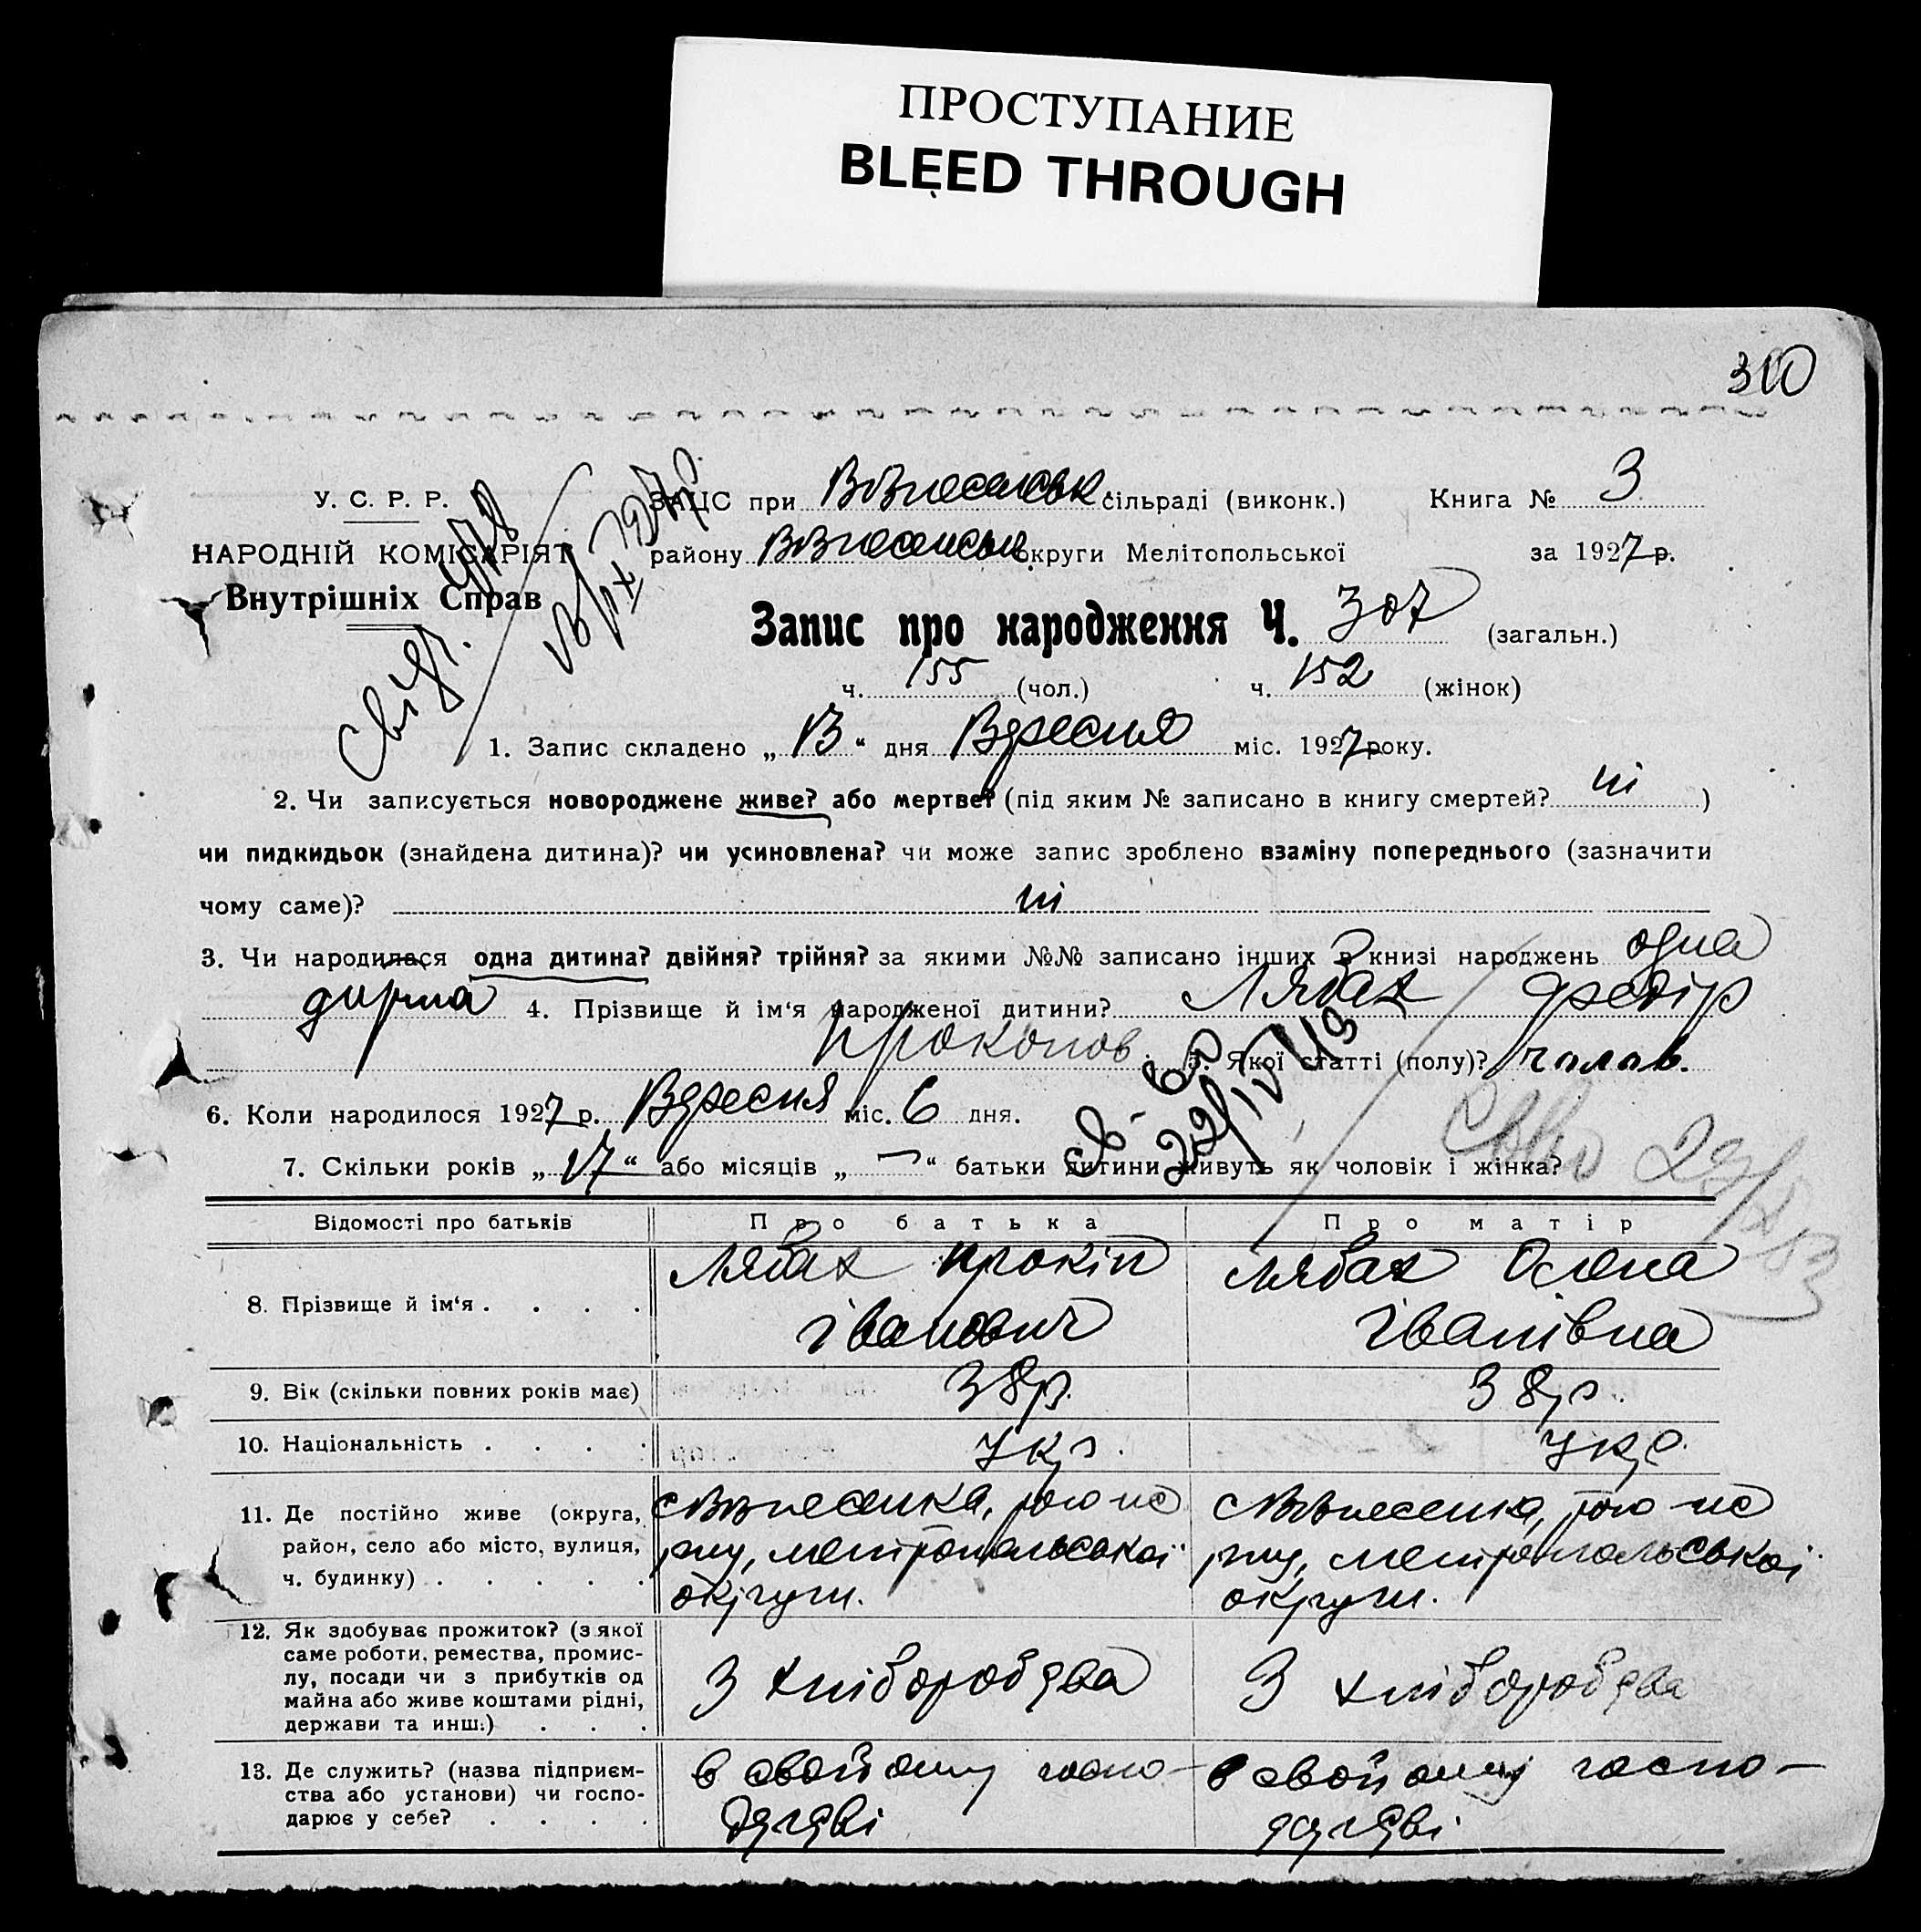 ПРОСТУПАНИЕ
BLEED THROUGH
310
У. С. Р. Р.
НАРОДНІЙ КОМІСАРІЯТ
Внутрішніх Справ
Свідт.
ЗАЦС при Вознесенськ. сільраді (виконк.) Книга № 3
району Вознесенськ округи Мелітопольської за 1927 р.
Запис про народження Ч. 307 (загальн.)
ч. 155 (чол.) ч. 152 (жінок)
1. Запис складено „ 13 “ дня Вересня міс. 1927 року.
2. Чи записується новороджене живе? або мертве? (під яким № записано в книгу смертей? ні )
чи пидкидьок (знайдена дитина)? чи усиновлена? чи може запис зроблено взаміну попереднього (зазначити
чому саме)? ні
3. Чи народилася одна дитина? двійня? трійня? за якими №№ записано інших в книзі народжень одна
дитина 4. Прізвище й ім‘я народженої дитини? Лябах Федір
Прокопов. 5. Якої статті (полу)? чолов.
6. Коли народилося 1927 р. Вересня міс. 6 дня.
7. Скільки років „ 17 “ або місяців „ — “ батьки дитини живуть як чоловік і жінка?
Відомості про батьків Про батька Про матір
8. Прізвище й ім‘я . . . . Лябах Прокіп Лябах Олена
Іванович Іванівна
9. Вік (скільки повних років має) 38 р. 38 р.
10. Національність . . . . Укр. Укр.
11. Де постійно живе (округа, с Вознесенка, того же с Вознесенка, того же
район, село або місто, вулиця, рну, мелітопольської рну, мелітопольської
ч. будинку) . . . . . округи. округи.
12. Як здобуває прожиток? (з якої
саме роботи, ремества, промис-
лу, посади чи з прибутків од З хліборобства З хліборобства
майна або живе коштами рідні,
держави та инш.) . . .
13. Де служить? (назва підприєм- в свойому госпо- в свойому госпо-
ства або установи) чи госпо-
дарює у себе? . . . . дарстві дарстві